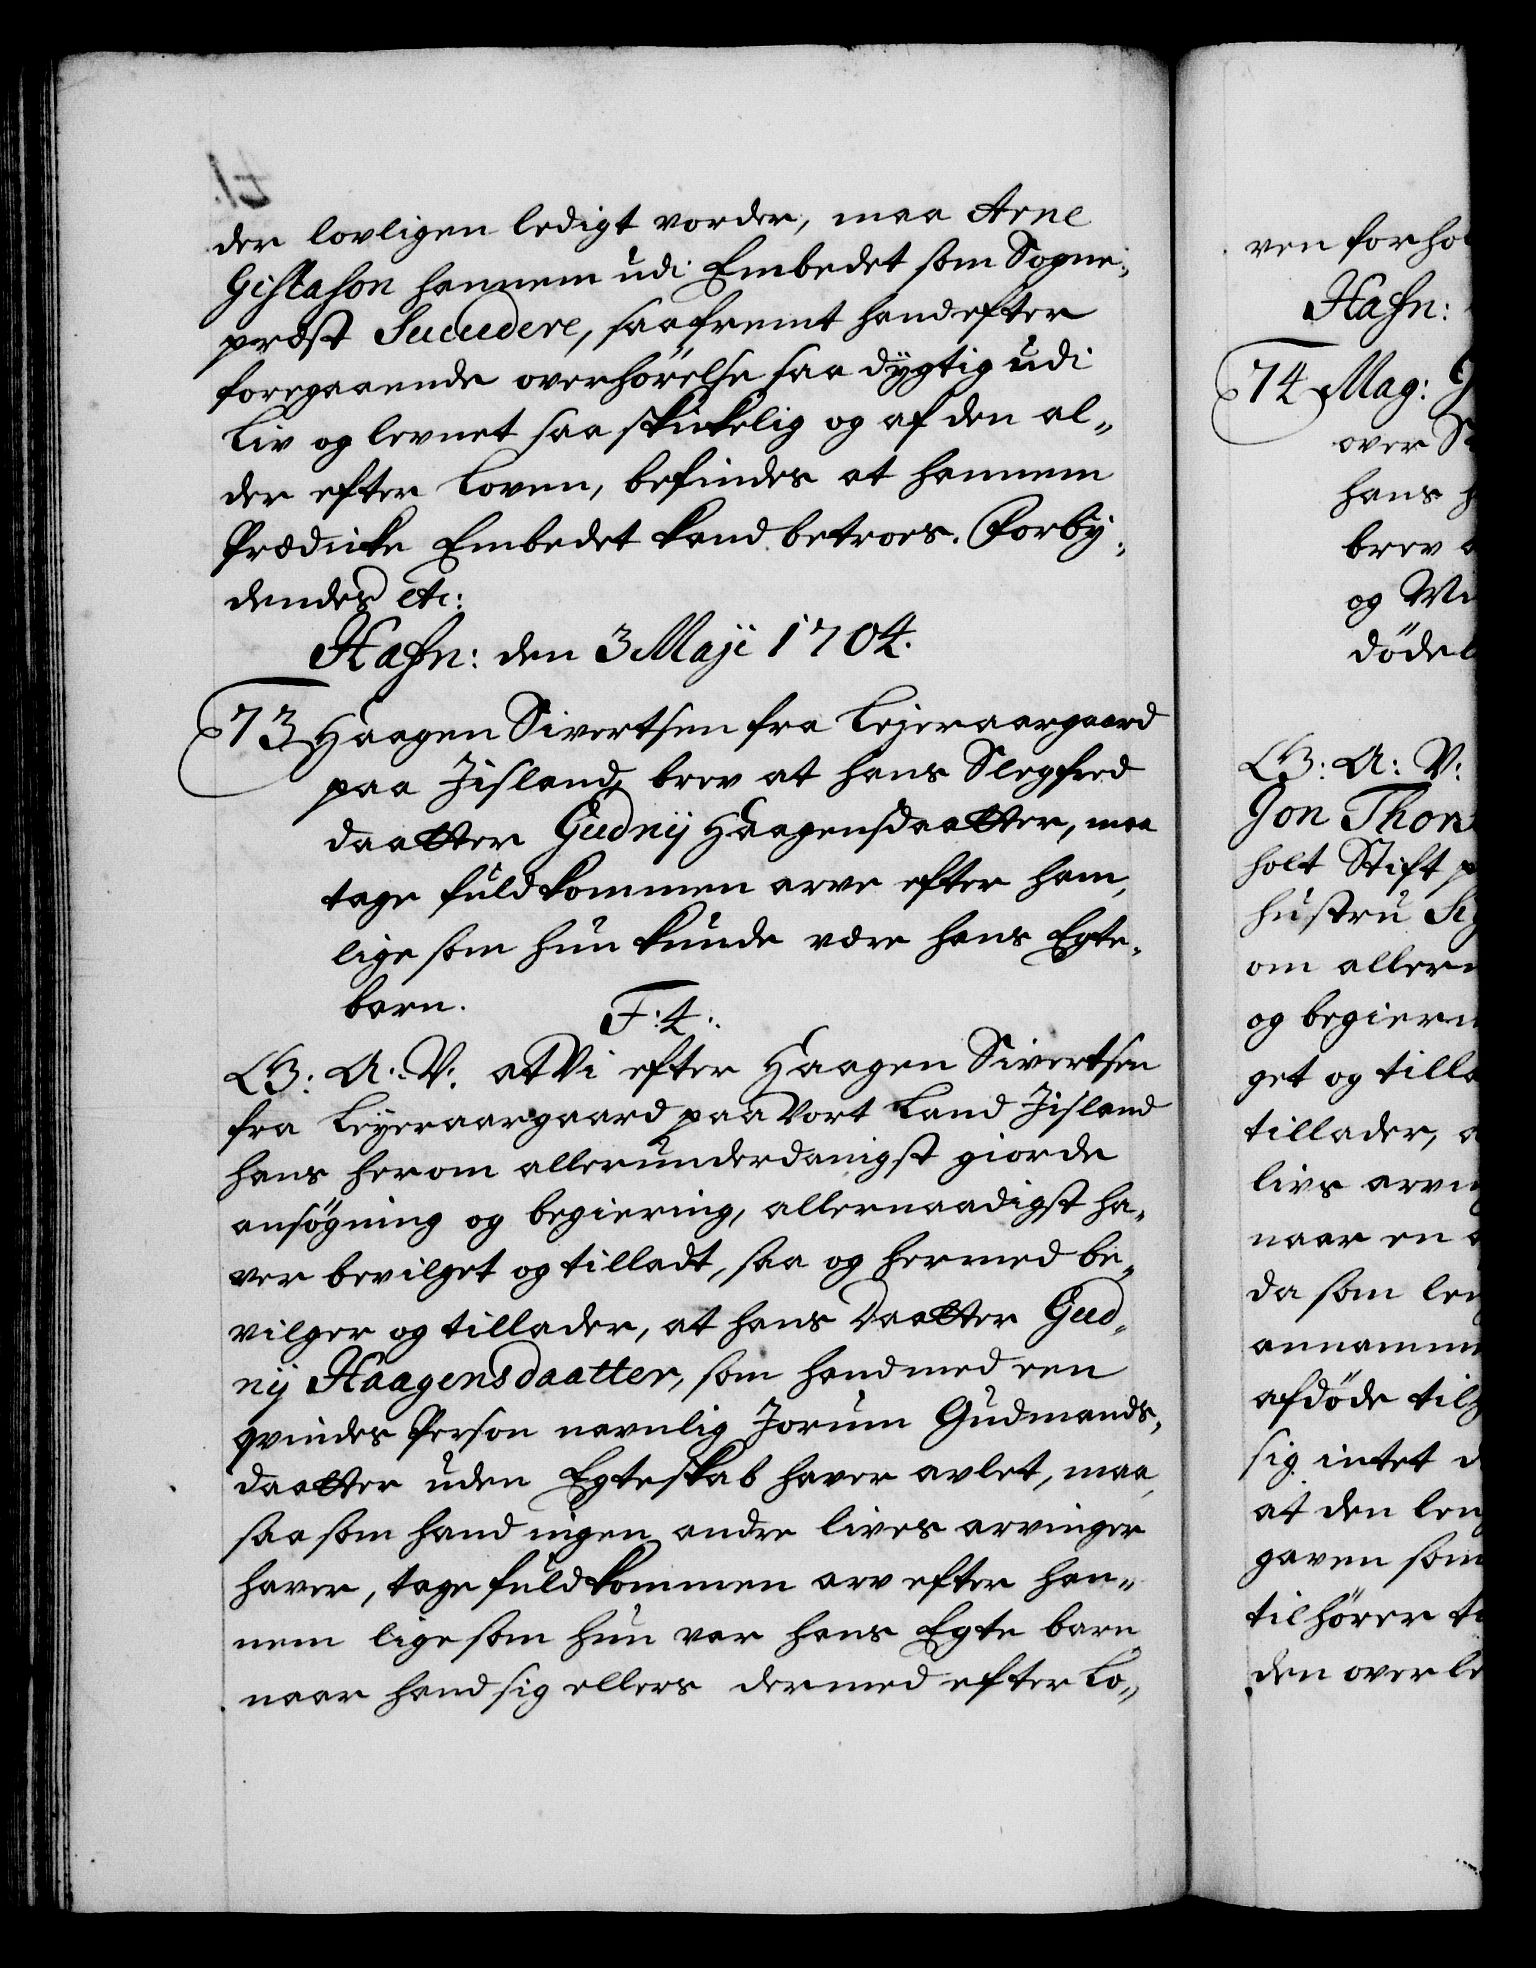 der lovligen ledigt vorder, maa Arne
Gislason hannem udi Embedet som Sogne„
præst Succedere, saafremt hand efter
foregaaende overhørelse saa dygtig udi
Liv og levnet saa skikelig og af den al„
der efter Loven, befindes at hannem
Prædicke Embedet kand betroes. Forby„
dendes etc:
Hafn: den 3 Maji 1704.
73 Haagen Sivertsen fra Lejeraargaard
paa Jisland, brev at hans Slegfred
daatter Gudnij Haagensdaatter, maa
tage fuldkommen arve efter ham,
lige som hun kunde være hans Egte„
barn.
F: 4:
G: A: V: at Vi efter Haagen Sivertsen
fra Leyeraargaard paa Vort Land Jisland
hans herom allerunderdanigst giorde
ansøgning og begiering, allernaadigst ha„
ver bevilget og tilladt, saa og hermed be„
vilger og tillader, at hans Daatter Gud„
nij Haagensdaatter, som hand med een
qvindes Person navnlig Jorum Gudmands„
daatter uden Egteskab haver avlet, maa,
saa som hand ingen andre lives arvinger
haver, tage fuldkommen arv efter han„
nem lige som hun var hans Egte barn
naar hand sig ellers dermed efter Lo„
ven forhol
Hafn:
74 Mag:
over
hans
brev
og
døde
G: A: V:
Jon Thor
holt Stift
hustru
om aller
og begier
get og tilla
tillader,
livs arv
naar en
da som
annamme
afdøde til
sig intet
at den
gaven som
tilhører
den over